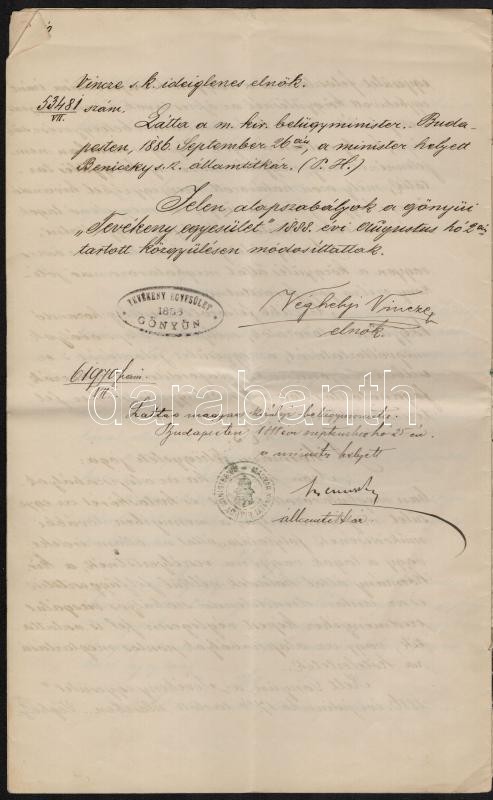 Vincze s.k. ideiglenes elnök.
53481/VII. szám.
Látta a m. kir. belügyminister. Buda-
pesten, 1886. September 26án, a minister helyett
Beniczky s.k. államtitkár. (P. H.)
Jelen alapszabályok a gönyüi
„Tevékeny egyesület" 1888. évi Augustus hó 2án
tartott közgyülésen módosíttattak.
TEVÉKENY EGYESÜLET
GÖNYÜN
Véghelyi Vincze
elnök.
61970 szám.
VII.
Látta a magyar királyi belügyminister.
Budapesten 1888 évi september hó 25 én
a minister helyett
államtitkár
darabanth